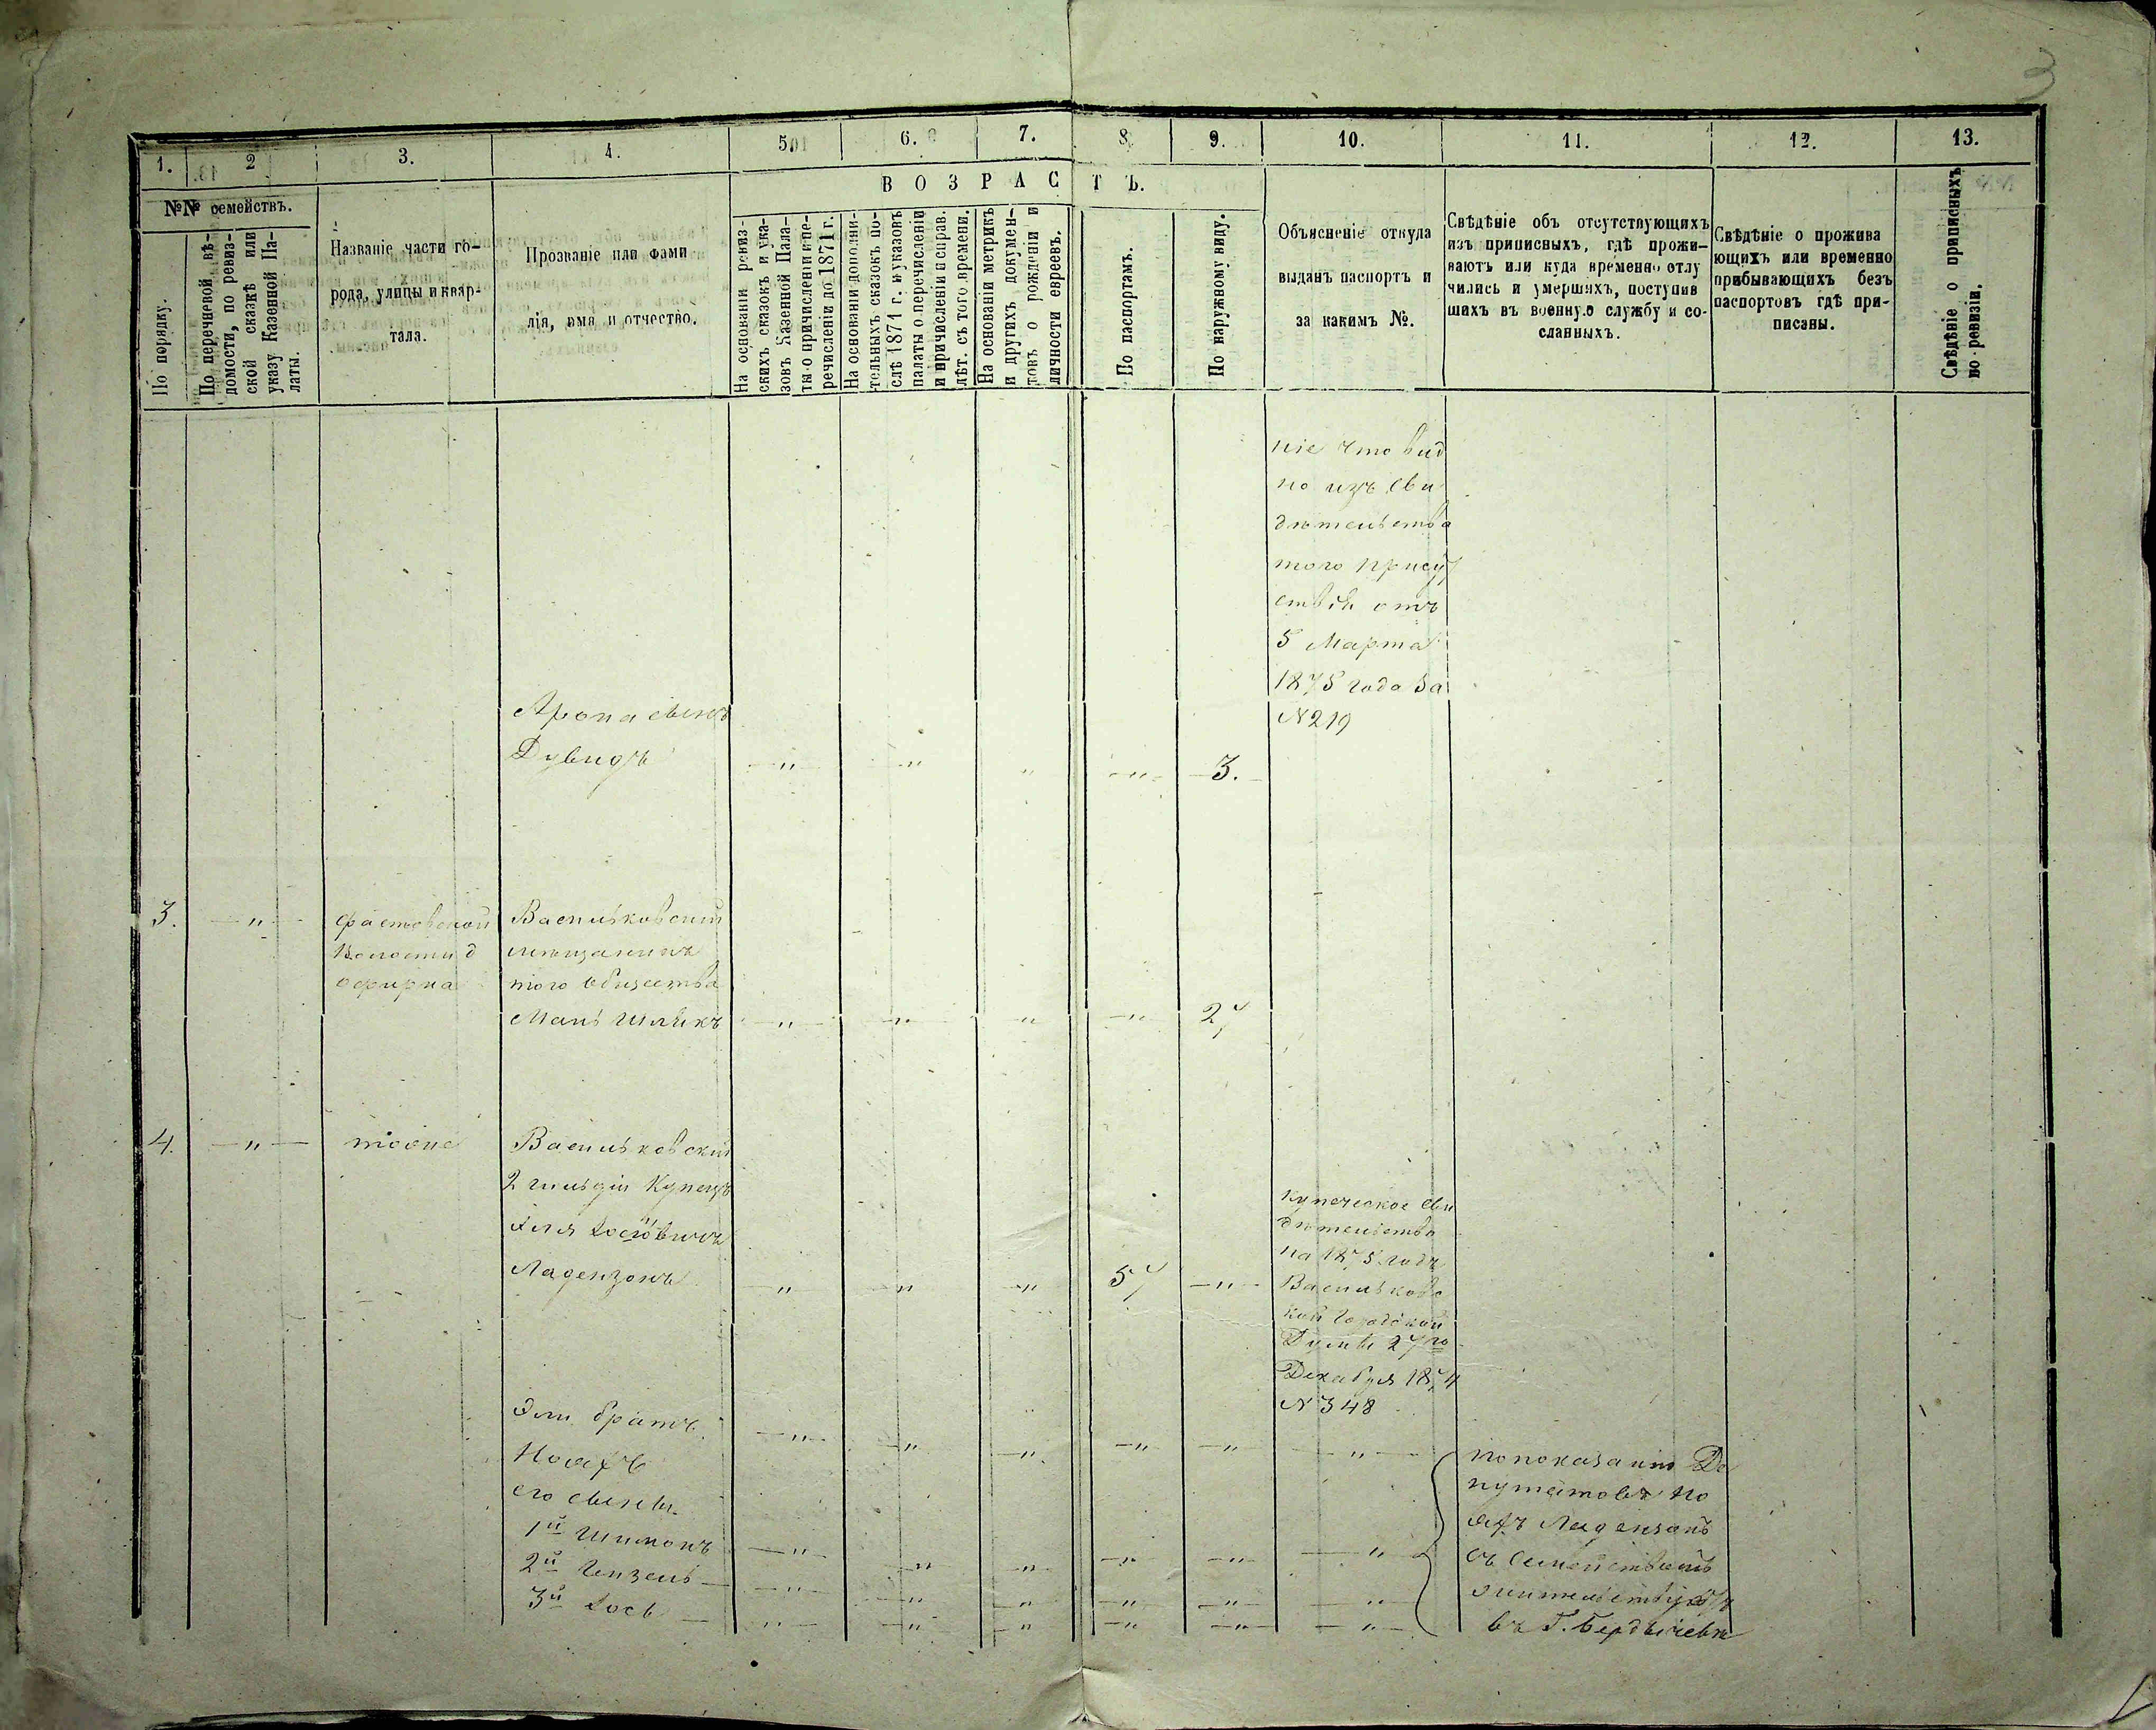 3
1. 2 3. 4. 5. 6. 7. 8. 9. 10. 11. 12. 13.
№№ семействъ.
По порядку.
По перечневой вѣ-
домости, по ревиз-
ской сказкѣ или
указу Казенной Па-
латы.
Названіе части го-
рода, улицы и квар-
тала.
Прозваніе или фами
лія, имя и отчество.
ВОЗРАСТЪ.
На основаніи ревиз-
скихъ сказокъ и ука-
зовъ Казенной Пала-
ты о причисленіи и пе-
речисленіи до 1871 г.
На основаніи дополни-
тельныхъ сказокъ по-
слѣ 1871 г. и указовъ
палаты о перечисленіи
и причисленіи и справ.
лѣт. съ того времени.
На основаніи метрикъ
и другихъ докумен-
товъ о рожденіи и
личности евреевъ.
По паспортамъ.
По наружному виду.
Объясненіе откуда
выданъ паспортъ и
за какимъ №.
Свѣдѣніе объ отсутствующихъ
изъ приписныхъ, гдѣ прожи-
ваютъ или куда временно отлу
чились и умершихъ, поступив
шихъ въ военную службу и со-
сланныхъ.
Свѣдѣніе о прожива
ющихъ или временно
прибывающихъ безъ
паспортовъ гдѣ при-
писаны.
Свѣдѣніе о приписныхъ
по ревизіи.
ніе что вид
но изъ сви
дѣтельства
того присут
ствія отъ
5 Марта
1875 года за
N 219
Арона сынъ
Дувидъ — " — — " — " — " — 3.
3. — " — Фастовской
волости д
офирна
Васильковский
мѣщанинъ
того общества
Мань Шлякъ — " — — " — " — " — 27
4. — " — тоже
Васильковский
2 гильдіи Купецъ
Іосіовичъ
Ладензонъ — " — — " — — " — 57 — " —
Купеческое сви
дѣтельство
на 1875 годъ
Васильковс
кой Городской
Думы 27го
Декабря 1874
N 348
братъ
Ноахъ — " — — " — — " — — " — — " — — " —
его сыны
1й Шимонъ — " — — " — — " — — " — — " — — " —
2й — " — — " — — " — — " — — " — — " —
3й Іось — " — — " — — " — — " — — " — — " —
по показанію Де
путатовъ Но
ахъ Ладензонъ
съ семействомъ
жительствуютъ
въ Г. Бердичевѣ